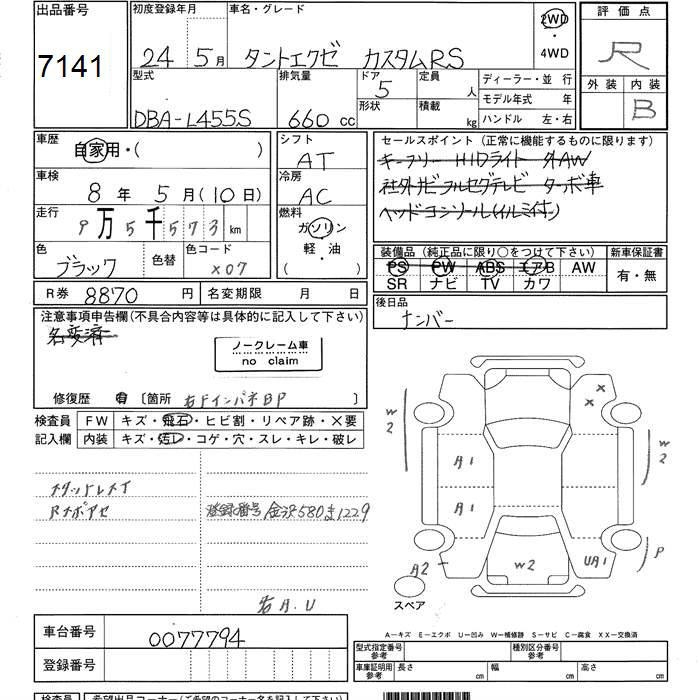 出品番号
7141
初度登録年月 車名・グレード
24 年 5 月 タントエクゼ カスタムRS
2WD
・
4WD
評価点
R
外装 内装
B
型式 排気量 ドア 定員 ディーラー・並行
DBA-L455S 660 cc 5 人 モデル年式 年
形状 積載 kg ハンドル 左・右
車歴
自家用・( )
シフト
AT
車検
8 年 5 月(10 日)
冷房
AC
走行
9万5千573 km
燃料
ガソリン
・
軽・油
( )
色 色替 色コード
ブラック X07
R券 8870 円 名変期限 月 日
セールスポイント(正常に機能するものに限ります)
キーフリー HIDライト 外AW
社外ナビ フルセグテレビ ターボ車
ヘッドコンソール(イルミ付)
装備品(純正品に限り○をつけて下さい) 新車保証書
PS PW ABS エアB AW 有・無
SR ナビ TV カワ
後日品
ナンバー
注意事項申告欄(不具合内容等は具体的に記入して下さい)
名変済
ノークレーム車
no claim
修復歴 有 〔箇所 右Fインパネ BP 〕
検査員 FW キズ・飛石・ヒビ割・リペア跡・×要
記入欄 内装 キズ・汚レ・コゲ・穴・スレ・キレ・破レ
登録番号 金沢580 1229
右A.U
W2
A1
A1
A2
W2
UA1
W2
P
スペア
車台番号 0077794
登録番号
A－キズ E－エクボ U－凹み W－補修跡 S－サビ C－腐食 XX－交換済
型式指定番号 参考 種別区分番号 参考
車庫証明用 参考 長さ cm 幅 cm 高さ cm
検査員 希望出品コーナー(ご希望のコーナー名を記入して下さい)